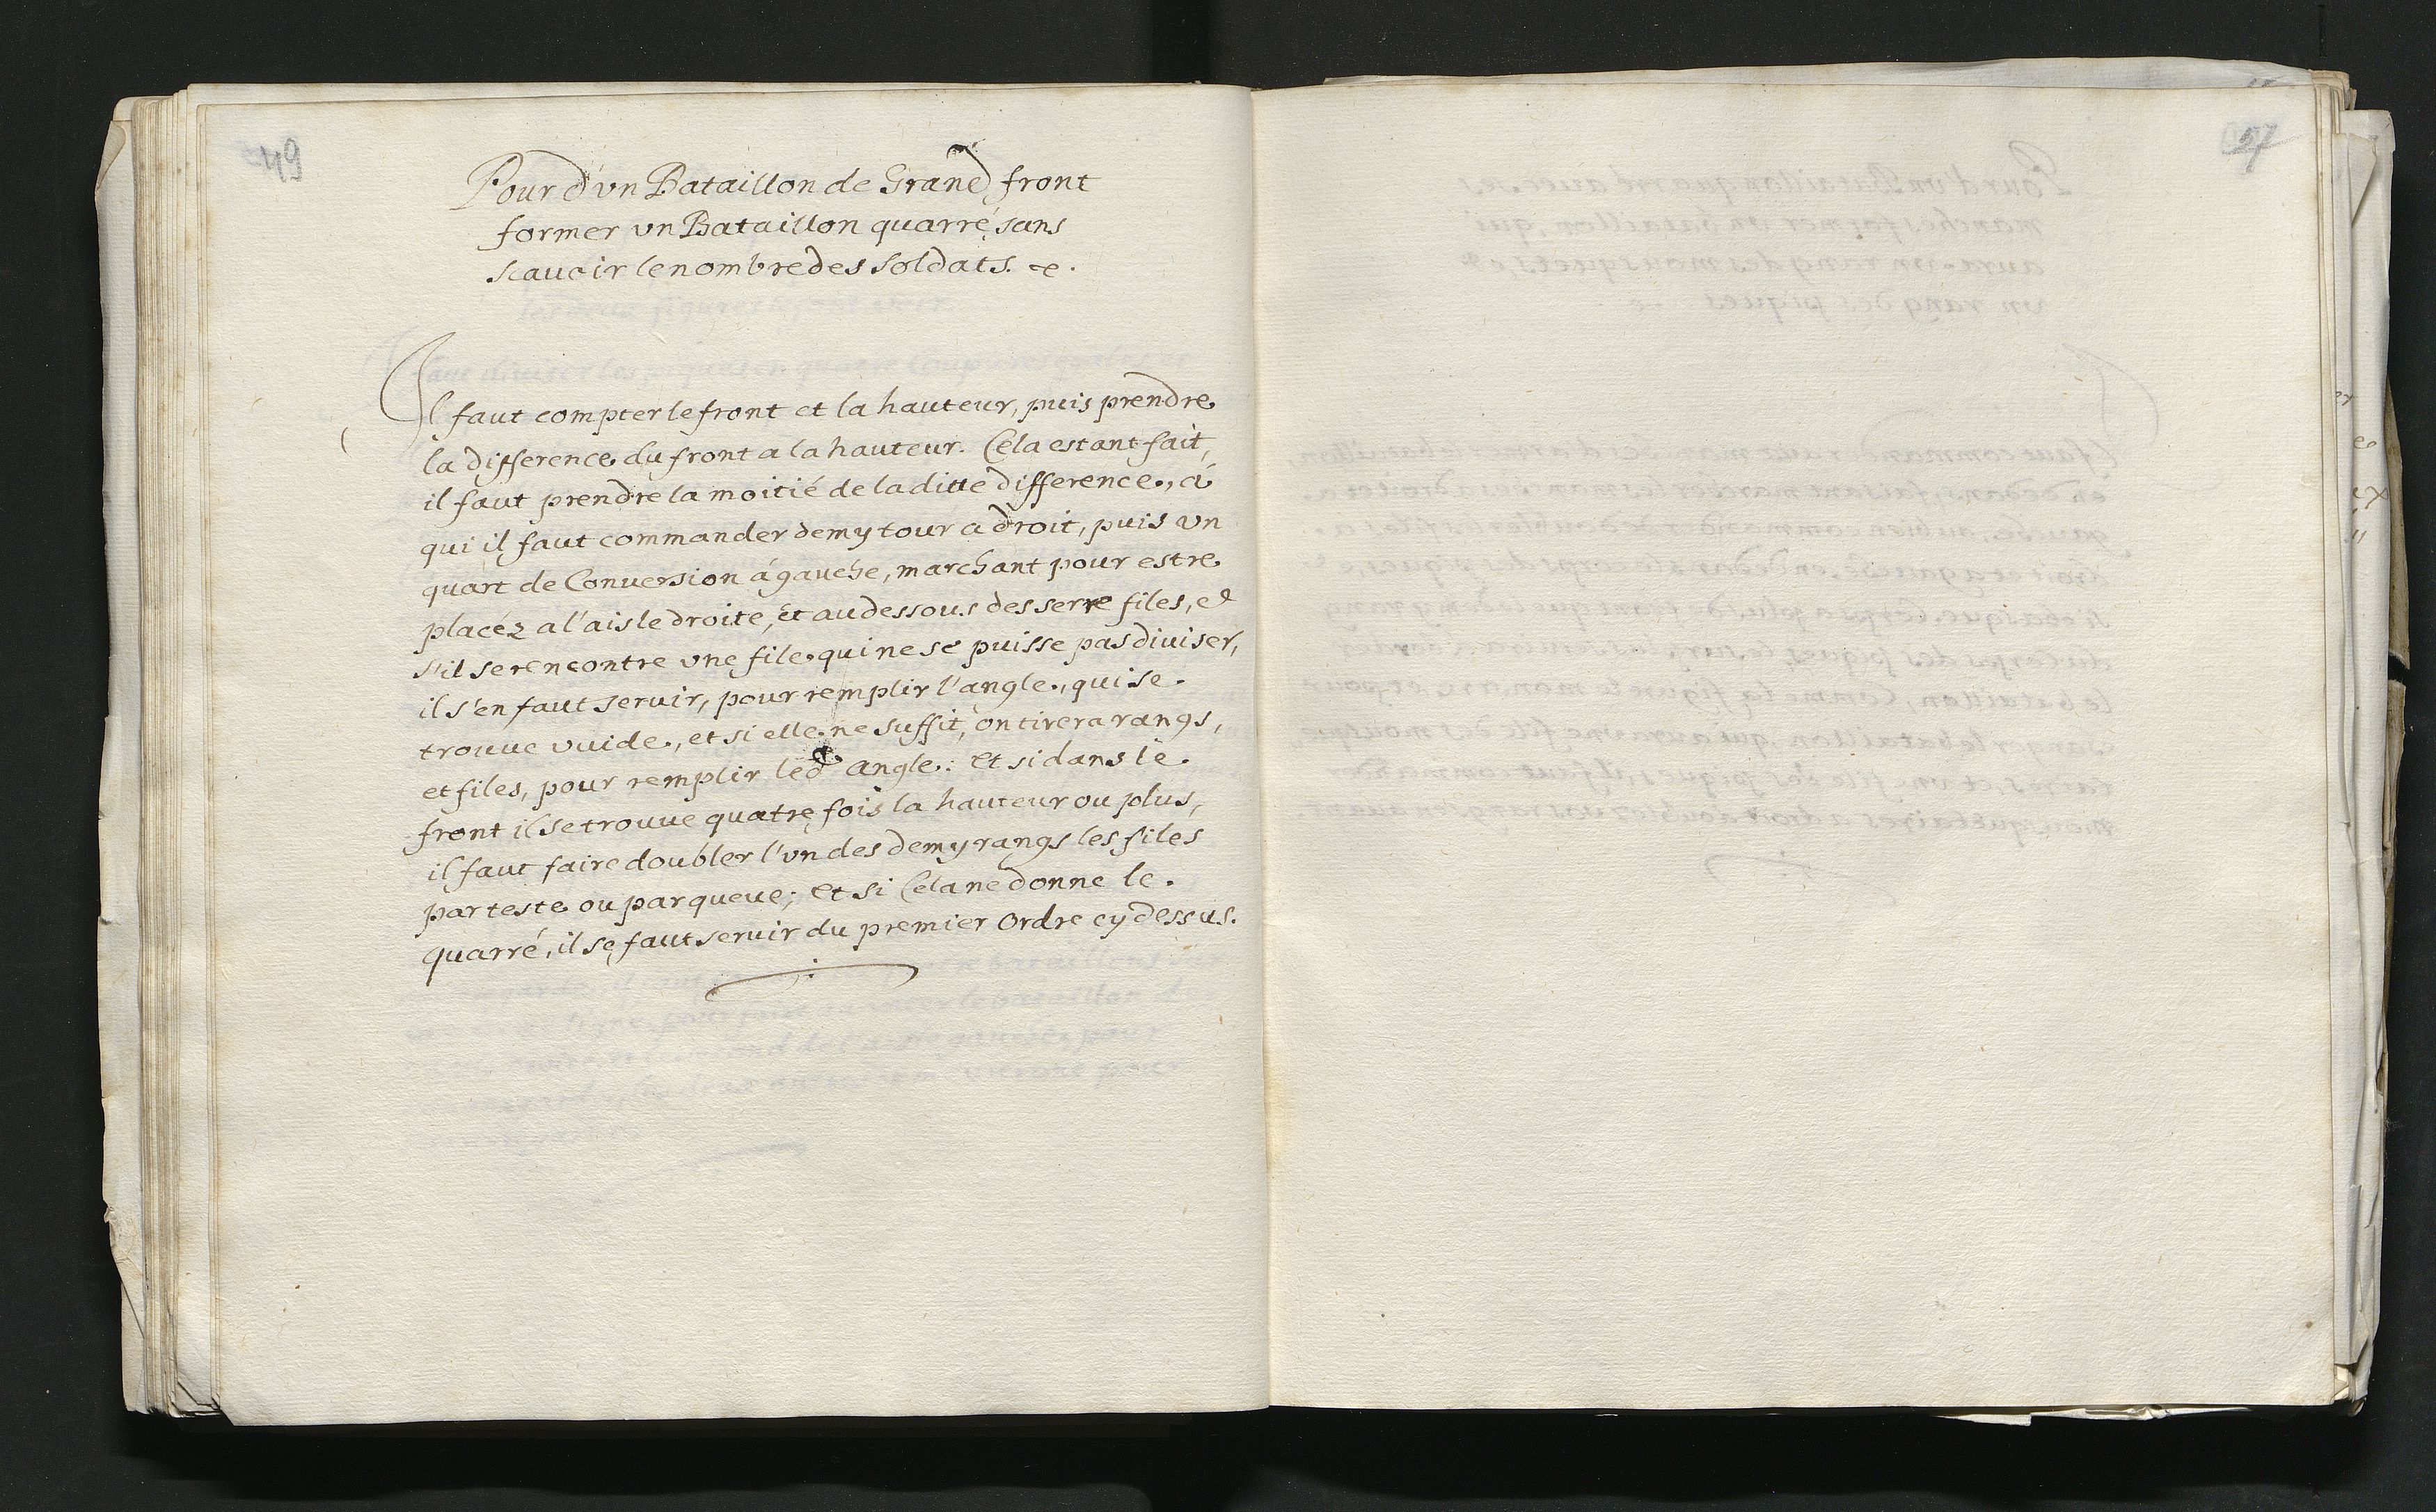 49
Pour d'vn Bataillon de Grand front
former vn Bataillon quarré, sans
scauoir le nombre des soldats.
Il faut compter le front et la hauteur, puis prendre
la difference du front a la hauteur. Cela estant fait,
il faut prendre la moitié de la ditte difference, à
qui il faut commander demy tour a droit, puis vn
quart de Conuersion á gauche, marchant pour estre
placéz a l'aisle droite, et au dessous des serre files, et
s'il se rencontre vne file qui ne se puisse pas diuiser,
il s'en faut seruir, pour remplir l'angle, qui se
trouue vuide, et si elle ne suffit, on tirera rangs,
et files, pour remplir led.t angle: Et si dans le
front il se trouue quatre fois la hauteur ou plus,
il faut faire doubler l'vn des demy rangs les files
par teste ou par queue; Et si Cela ne donne le
quarré, il se faut seruir du premier Ordre cy dessus.
27